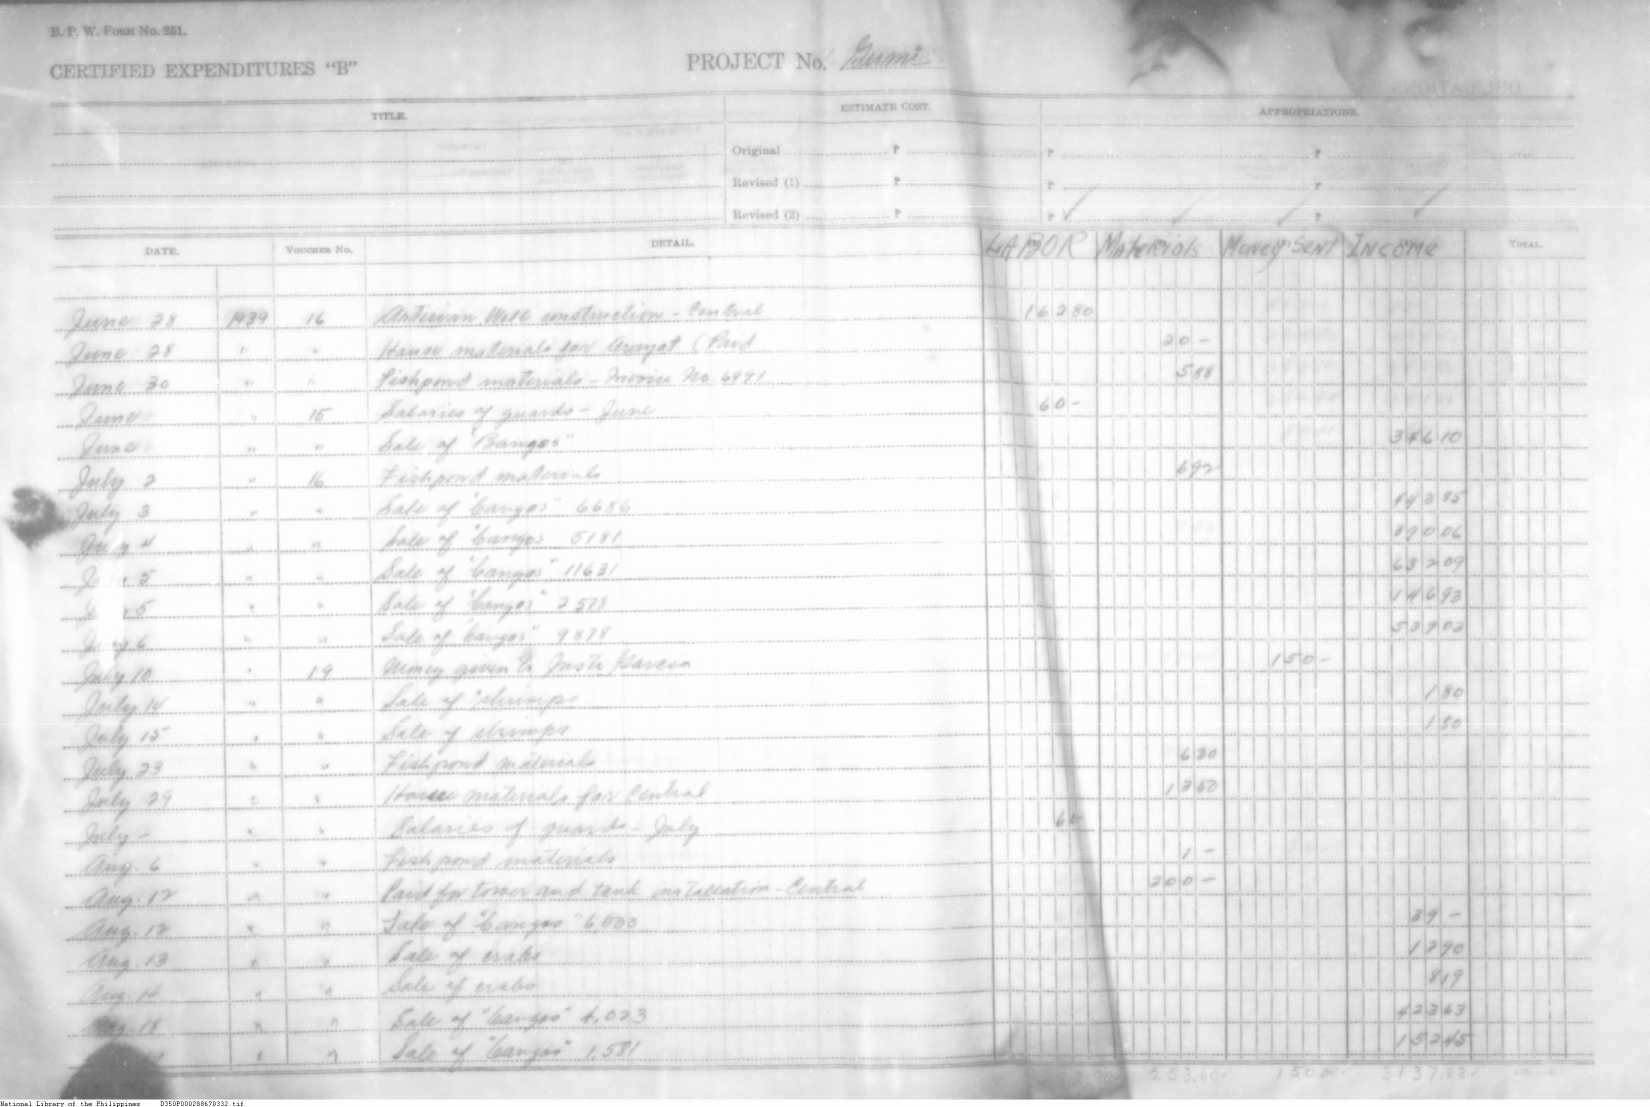 B. P. W. Form No. 251.
CERTIFIED EXPENDITURES "B"
PROJECT No.
TITLE.
ESTIMATE COST.
APPROPRIATIONS.
Original ₱ ₱ ₱
Revised (1) ₱ ₱ ₱
Revised (2) ₱ ₱ ₱
DATE. VOUCHER No. DETAIL. LABOR Materials Money Sent INCOME TOTAL.
June 28 1939 16 Artesian Well construction - Central 162 80
June 28 " " House materials for (Paid 20 -
June 30 " " Fishpond materials - Invoice No. 6991 5 88
June " 15 Salaries of guards - June 60 -
June " " Sale of "Bangos" 346 10
July 2 " 16 Fishpond materials 6 92
July 3 " " Sale of "bangos" 6686
July 4 " " Sale of "bangos 5181 390 06
5 " " Sale of "bangos" 11631 632 09
5 " " Sale of "bangos" 146 93
6 " " Sale of "bangos" 9878 539 02
July 10 " 19 Money given to 150 -
July 14 " " Sale of "shrimps 1 80
July 15 " " Sale of shrimps 1 80
July 23 " " Fishpond materials 6 30
July 29 " " House materials for Central 13 50
July - " " Salaries of guards - July
Aug. 6 " " Fishpond materials 1 -
Aug. 12 " " Paid for tower and tank installation - Central 200 -
Aug. 12 " " Sale of "bangos" 39 -
Aug. 13 " " Sale of crabs 12 90
Aug. 14 " " Sale of crabs 8 19
Aug. 18 " " Sale of "bangos" 4,023 423 63
" " Sale of "bangos" 1,581 152 45
National Library of the Philippines D350P000288670332.tif